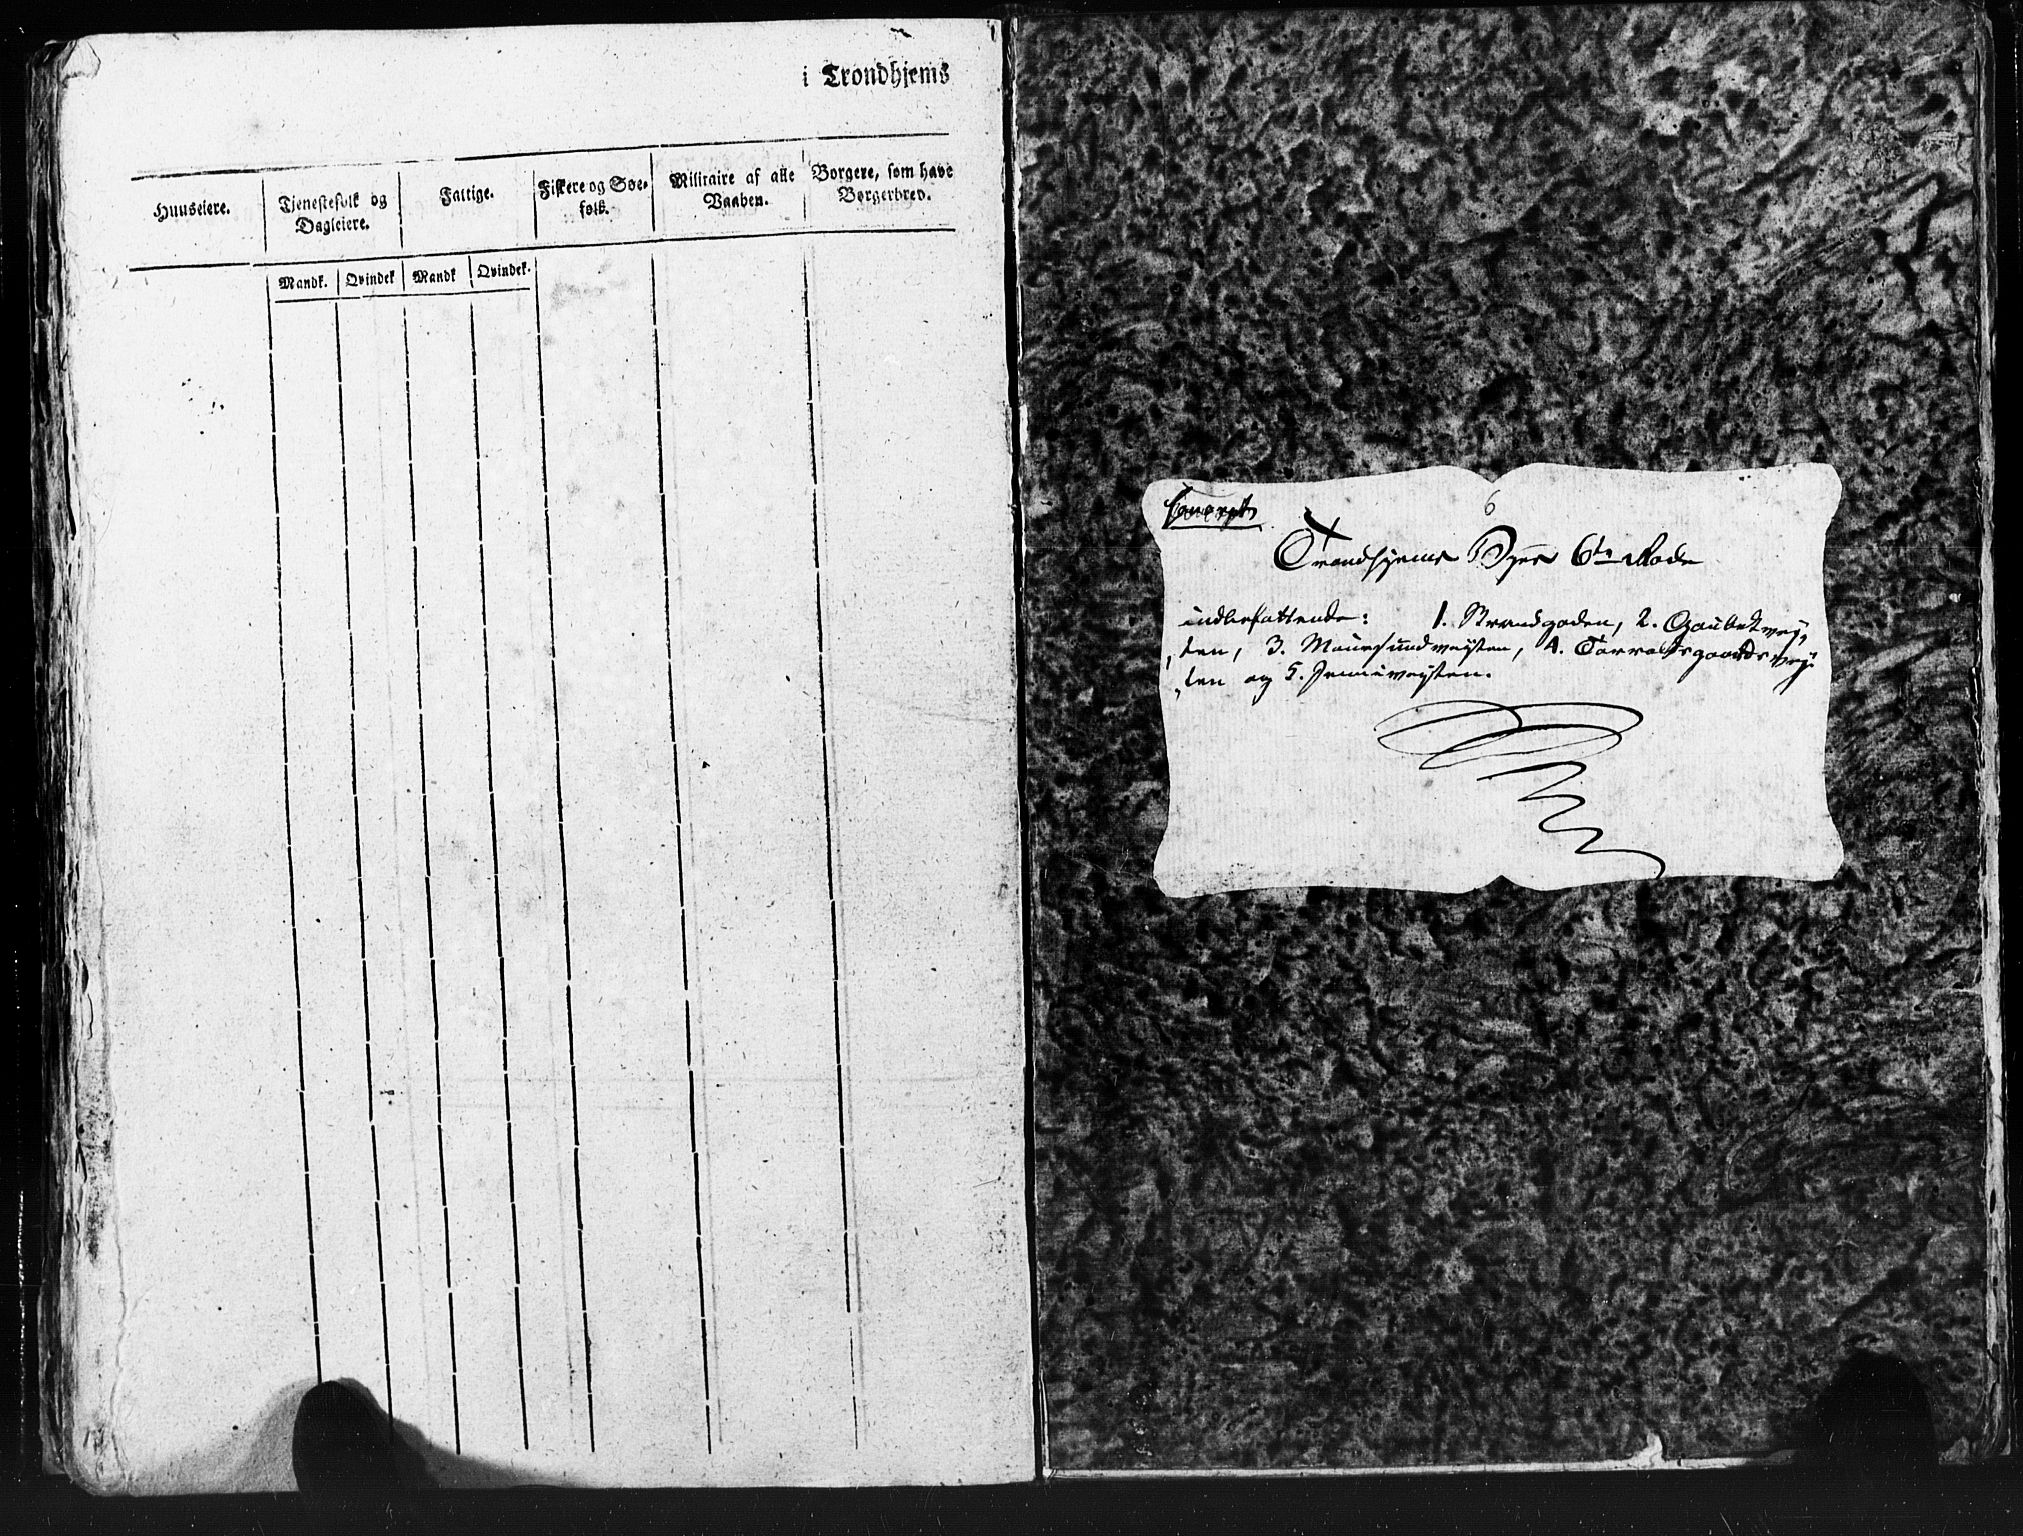 i Trondhjems
Huuseiere.
Tjenestefolk og
Dagleiere.
Fattige.
Fiskere og Søe-
folk.
Militaire af alle
Vaaben.
Borgere, som have
Borgerbrev.
Mandk.
Qvindek
Mandk
Qvindek.
6
Trondhjems Byes 6te Rode
indbefattende: 1. Strandgaden, 2. Gaubekvej,
ten, 3. Mauersundveyten,
ten og 5.